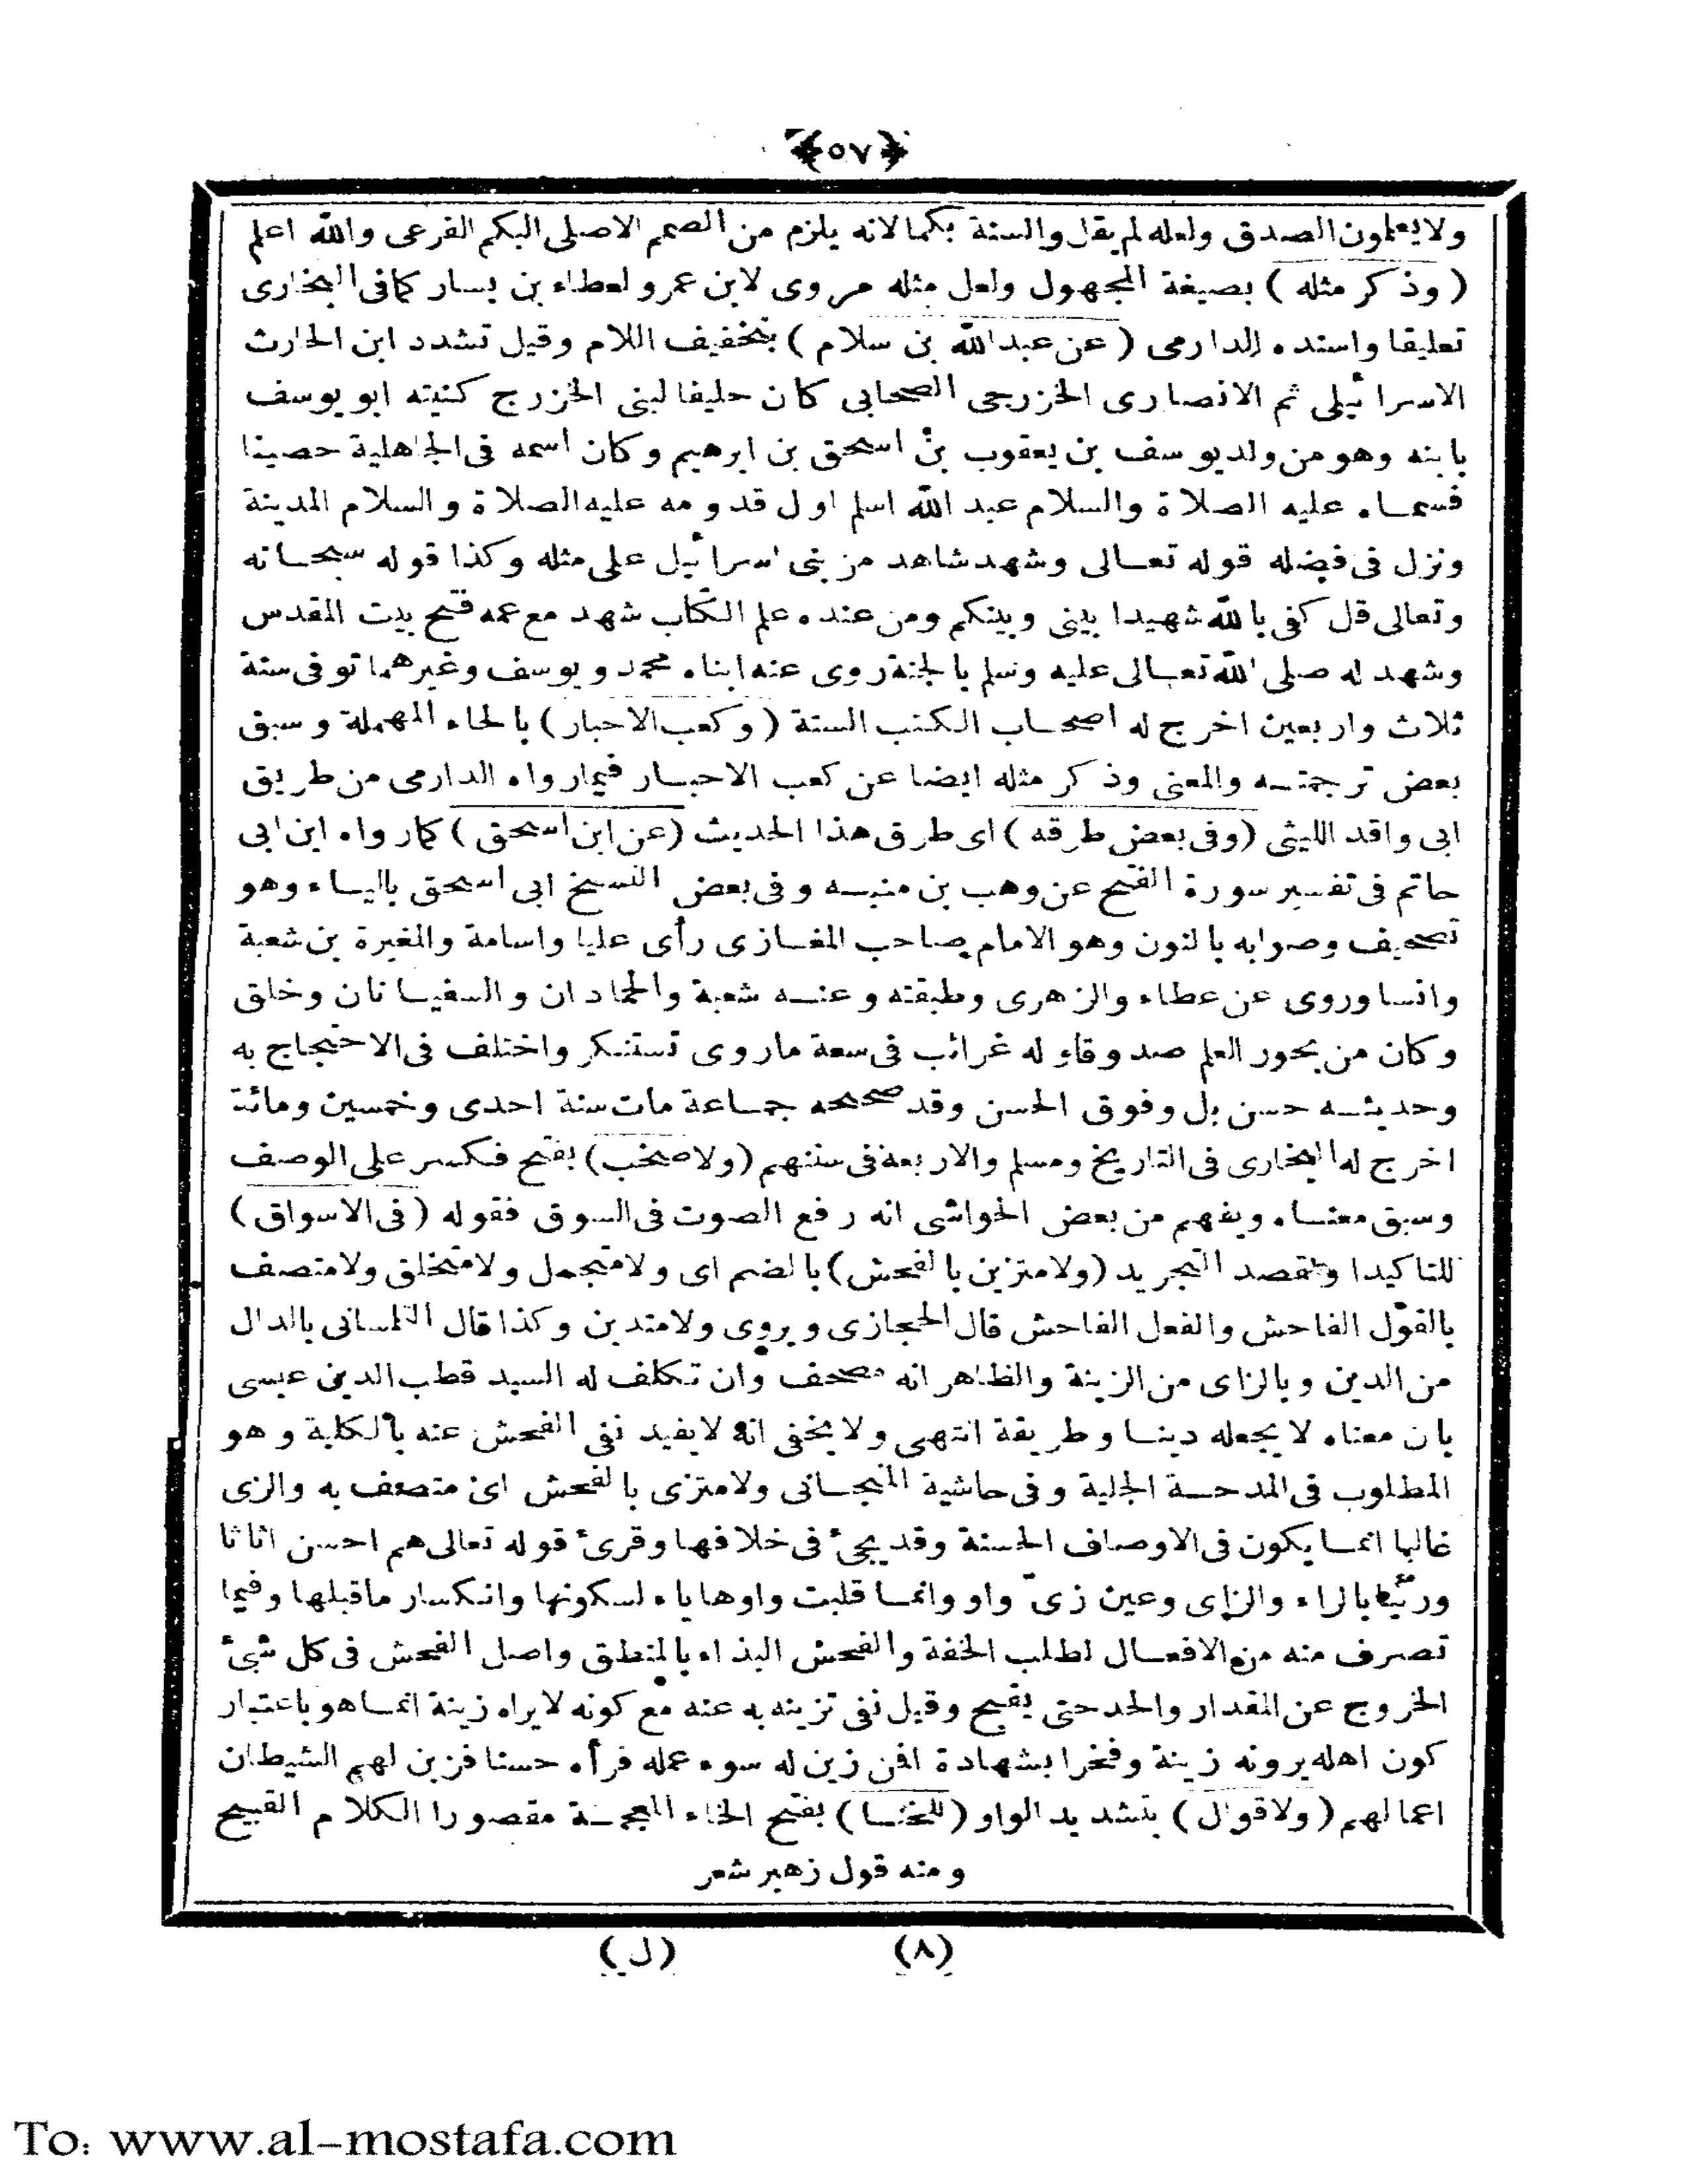 ﴿٥٧﴾
ولا يعلمون الصدق ولعله لم يقل والسنة بكما لانه يلزم من الصمم الاصلى البكم الفرعى والله اعلم
( وذكر مثله ) بصيغة المجهول ولعل مثله مروى لابن عمرو ولعطاء بن يسار كمافى البخارى
تعليقا واسنده الدارمى ( عن عبدالله بن سلام ) بتخفيف اللام وقيل تشدد ابن الحارث
الاسرائيلى ثم الانصارى الخزرجى الصحابى كان حليفا لبنى الخزرج كنيته ابو يوسف
بابنه وهو من ولد يوسف بن يعقوب بن اسحق بن ابرهيم وكان اسمه فى الجاهلية حصينا
فسماه عليه الصلاة والسلام عبد الله اسلم اول قدومه عليه الصلاة والسلام المدينة
ونزل فى فضله قوله تعالى وشهد شاهد من بنى اسرائيل على مثله وكذا قوله سبحانه
وتعالى قل كفى بالله شهيدا بينى وبينكم ومن عنده علم الكتاب شهد مع عمه فتح بيت المقدس
وشهد له صلى الله تعالى عليه وسلم بالجنة روى عنه ابناه محمد ويوسف وغيرهما توفى سنة
ثلاث واربعين اخرج له اصحاب الكتب الستة ( وكعب الاحبار ) بالحاء المهملة وسبق
بعض ترجمته والمعنى وذكر مثله ايضا عن كعب الاحبار فيمارواه الدارمى من طريق
ابى واقد الليثى (وفى بعض طرقه ) اى طرق هذا الحديث (عن ابن اسحق ) كمارواه ابن ابى
حاتم فى تفسير سورة الفتح عن وهب بن منبه وفى بعض النسخ ابى اسحق بالياء وهو
تصحيف وصوابه بالنون وهو الامام صاحب المغازى رأى عليا واسامة والمغيرة بن شعبة
وانسا وروى عن عطاء والزهرى وطبقته وعنه شعبة والحمادان والسفيانان وخلق
وكان من بحور العلم صدوقا وله غرائب فى سعة ماروى تستنكر واختلف فى الاحتجاج به
وحديثه حسن بل وفوق الحسن وقد صححه جماعة مات سنة احدى وخمسين ومائة
اخرج له البخارى فى التاريخ ومسلم والاربعة فى سننهم (ولاصخب) بفتح فكسر على الوصف
وسبق معناه ويفهم من بعض الحواشى انه رفع الصوت فى السوق فقوله ( فى الاسواق )
للتاكيدا ولقصد التجريد (ولا متزين بالفحش) بالضم اى ولا متجمل ولا متخلق ولا متصف
بالقول الفاحش والفعل الفاحش قال الحجازى ويروى ولا متدين وكذا قال التلمسانى بالدال
من الدين وبالزاى من الزينة والظاهر انه مصحف وان تكلف له السيد قطب الدين عيسى
بان معناه لا يجعله دينا وطريقة انتهى ولا يخفى انه لا يفيد نفى الفحش عنه بالكلية وهو
المطلوب فى المدحة الجلية وفى حاشية المنجانى ولا متزى بالفحش اى متصف به والزى
غالبا انما يكون فى الاوصاف الحسنة وقد يجئ فى خلافها وقرئ قوله تعالى هم احسن اثاثا
ورئيا بالراء والزاى وعين زىّ واو وانما قلبت واوها ياء لسكونها وانكسار ماقبلها وفيما
تصرف منه من الافعال لطلب الخفة والفحش البذاء بالمنطق واصل الفحش فى كل شئ
الخروج عن المقدار والحد حتى يقبح وقيل نفى تزينه به عنه مع كونه لايراه زينة انما هو باعتبار
كون اهله يرونه زينة وفخرا بشهادة افمن زين له سوء عمله فرأه حسنا فزين لهم الشيطان
اعمالهم ( ولا قوال ) بتشديد الواو ( للخنا ) بفتح الخاء المعجمة مقصورا الكلام القبيح
ومنه قول زهير شعر
(٨) (ل)
To: www.al-mostafa.com